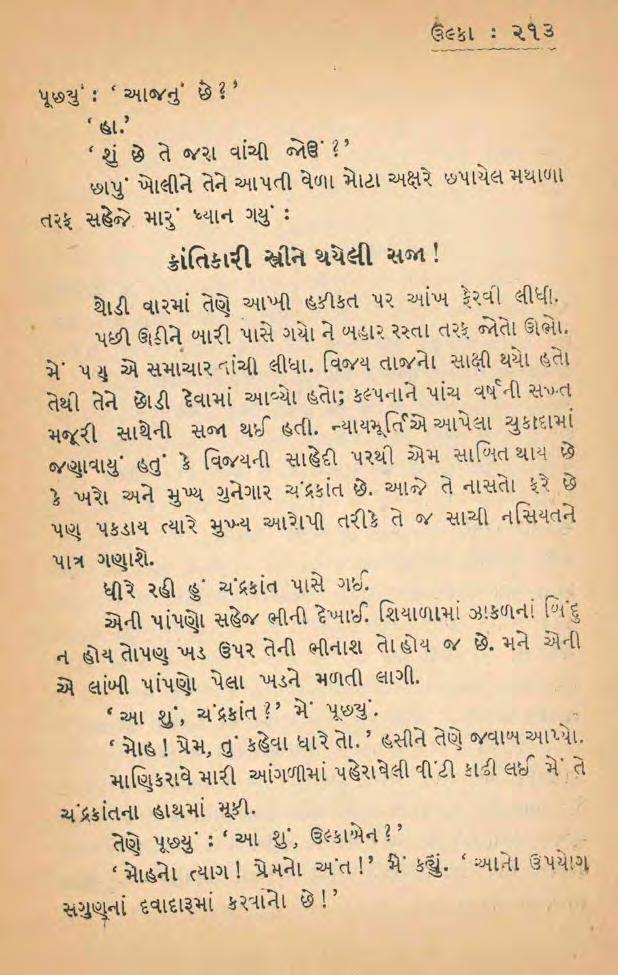 ઉલ્કા : ૨૧૩
પૂછયું : ‘ આજનું છે ? ’
‘ હા. ’
‘ શું છે તે જરા વાંચી જોઉં ? ’
છાપું ખોલીને તેને આપતી વેળા મોટા અક્ષરે છપાયેલ મથાળા
તરફ સહેજે મારું ધ્યાન ગયું :
ક્રાંતિકારી સ્ત્રીને થયેલી સજા !
થોડી વારમાં તેણે આખી હકીકત પર આંખ ફેરવી લીધી.
પછી ઊઠીને બારી પાસે ગયો ને બહાર રસ્તા તરફ જોતો ઊભો.
મેં પણ એ સમાચાર વાંચી લીધા. વિજય તાજનો સાક્ષી થયો હતો
તેથી તેને છોડી દેવામાં આવ્યો હતો; કલ્પનાને પાંચ વર્ષની સખ્ત
મજૂરી સાથેની સજા થઈ હતી. ન્યાયમૂર્તિએ આપેલા ચુકાદામાં
જણાવાયું હતું કે વિજયની સાહેદી પરથી એમ સાબિત થાય છે
કે ખરો અને મુખ્ય ગુનેગાર ચંદ્રકાંત છે. આજે તે નાસતો ફરે છે
પણ પકડાય ત્યારે મુખ્ય આરોપી તરીકે તે જ સાચી નસિયતને
પાત્ર ગણાશે.
ધીરે રહી હું ચંદ્રકાંત પાસે ગઈ.
એની પાંપણો સહેજ ભીની દેખાઈ. શિયાળામાં ઝાકળનાં બિંદુ
ન હોય તોપણ ખડ ઉપર તેની ભીનાશ તો હોય જ છે. મને એની
એ લાંબી પાંપણો પેલા ખડને મળતી લાગી.
‘ આ શું, ચંદ્રકાંત ? ’ મેં પૂછ્યું.
‘ મોહ ! પ્રેમ, તું કહેવા ધારે તો. ’ હસીને તેણે જવાબ આપ્યો.
માણિકરાવે મારી આંગળીમાં પહેરાવેલી વીંટી કાઢી લઈ મેં તે
ચંદ્રકાંતના હાથમાં મૂકી.
તેણે પૂછ્યું : ‘ આ શું, ઉલ્કાબેન ? ’
‘ મોહનો ત્યાગ ! પ્રેમનો અંત ! ’ મેં કહ્યું. ‘ આનો ઉપયોગ
સગુણનાં દવાદારૂમાં કરવાનો છે ! ’